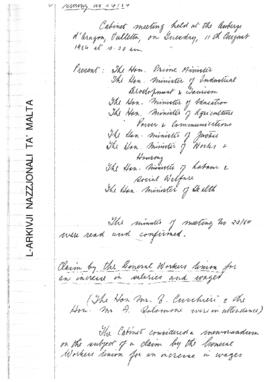 Meeting No 24/64
Cabinet meeting held at the Auberge
d'Aragon, Valletta, on Tuesday, 11th August
1964 at 9.30 am.
Present: The Hon. Prime Minister
The Hon. Minister of Industrial
Development & Tourism
The Hon. Minister of Education
The Hon. Minister of Agriculture
Power & Communications
The Hon. Minister of Justice
The Hon. Minister of Works &
Housing
The Hon. Minister of Labour &
Social Welfare
The Hon. Minister of Health
The minutes of meeting No 23/64
were read and confirmed.
Claim by the General Workers Union for
an increase in salaries and wages
(The Hon Mr. E. & the
Hon. Mr A. Solomone were in attendance)
The Cabinet considered a memorandum
on the subject of a claim by the General
Workers Union for an increase in wages
L-ARKIVJI NAZZJONALI TA' MALTA